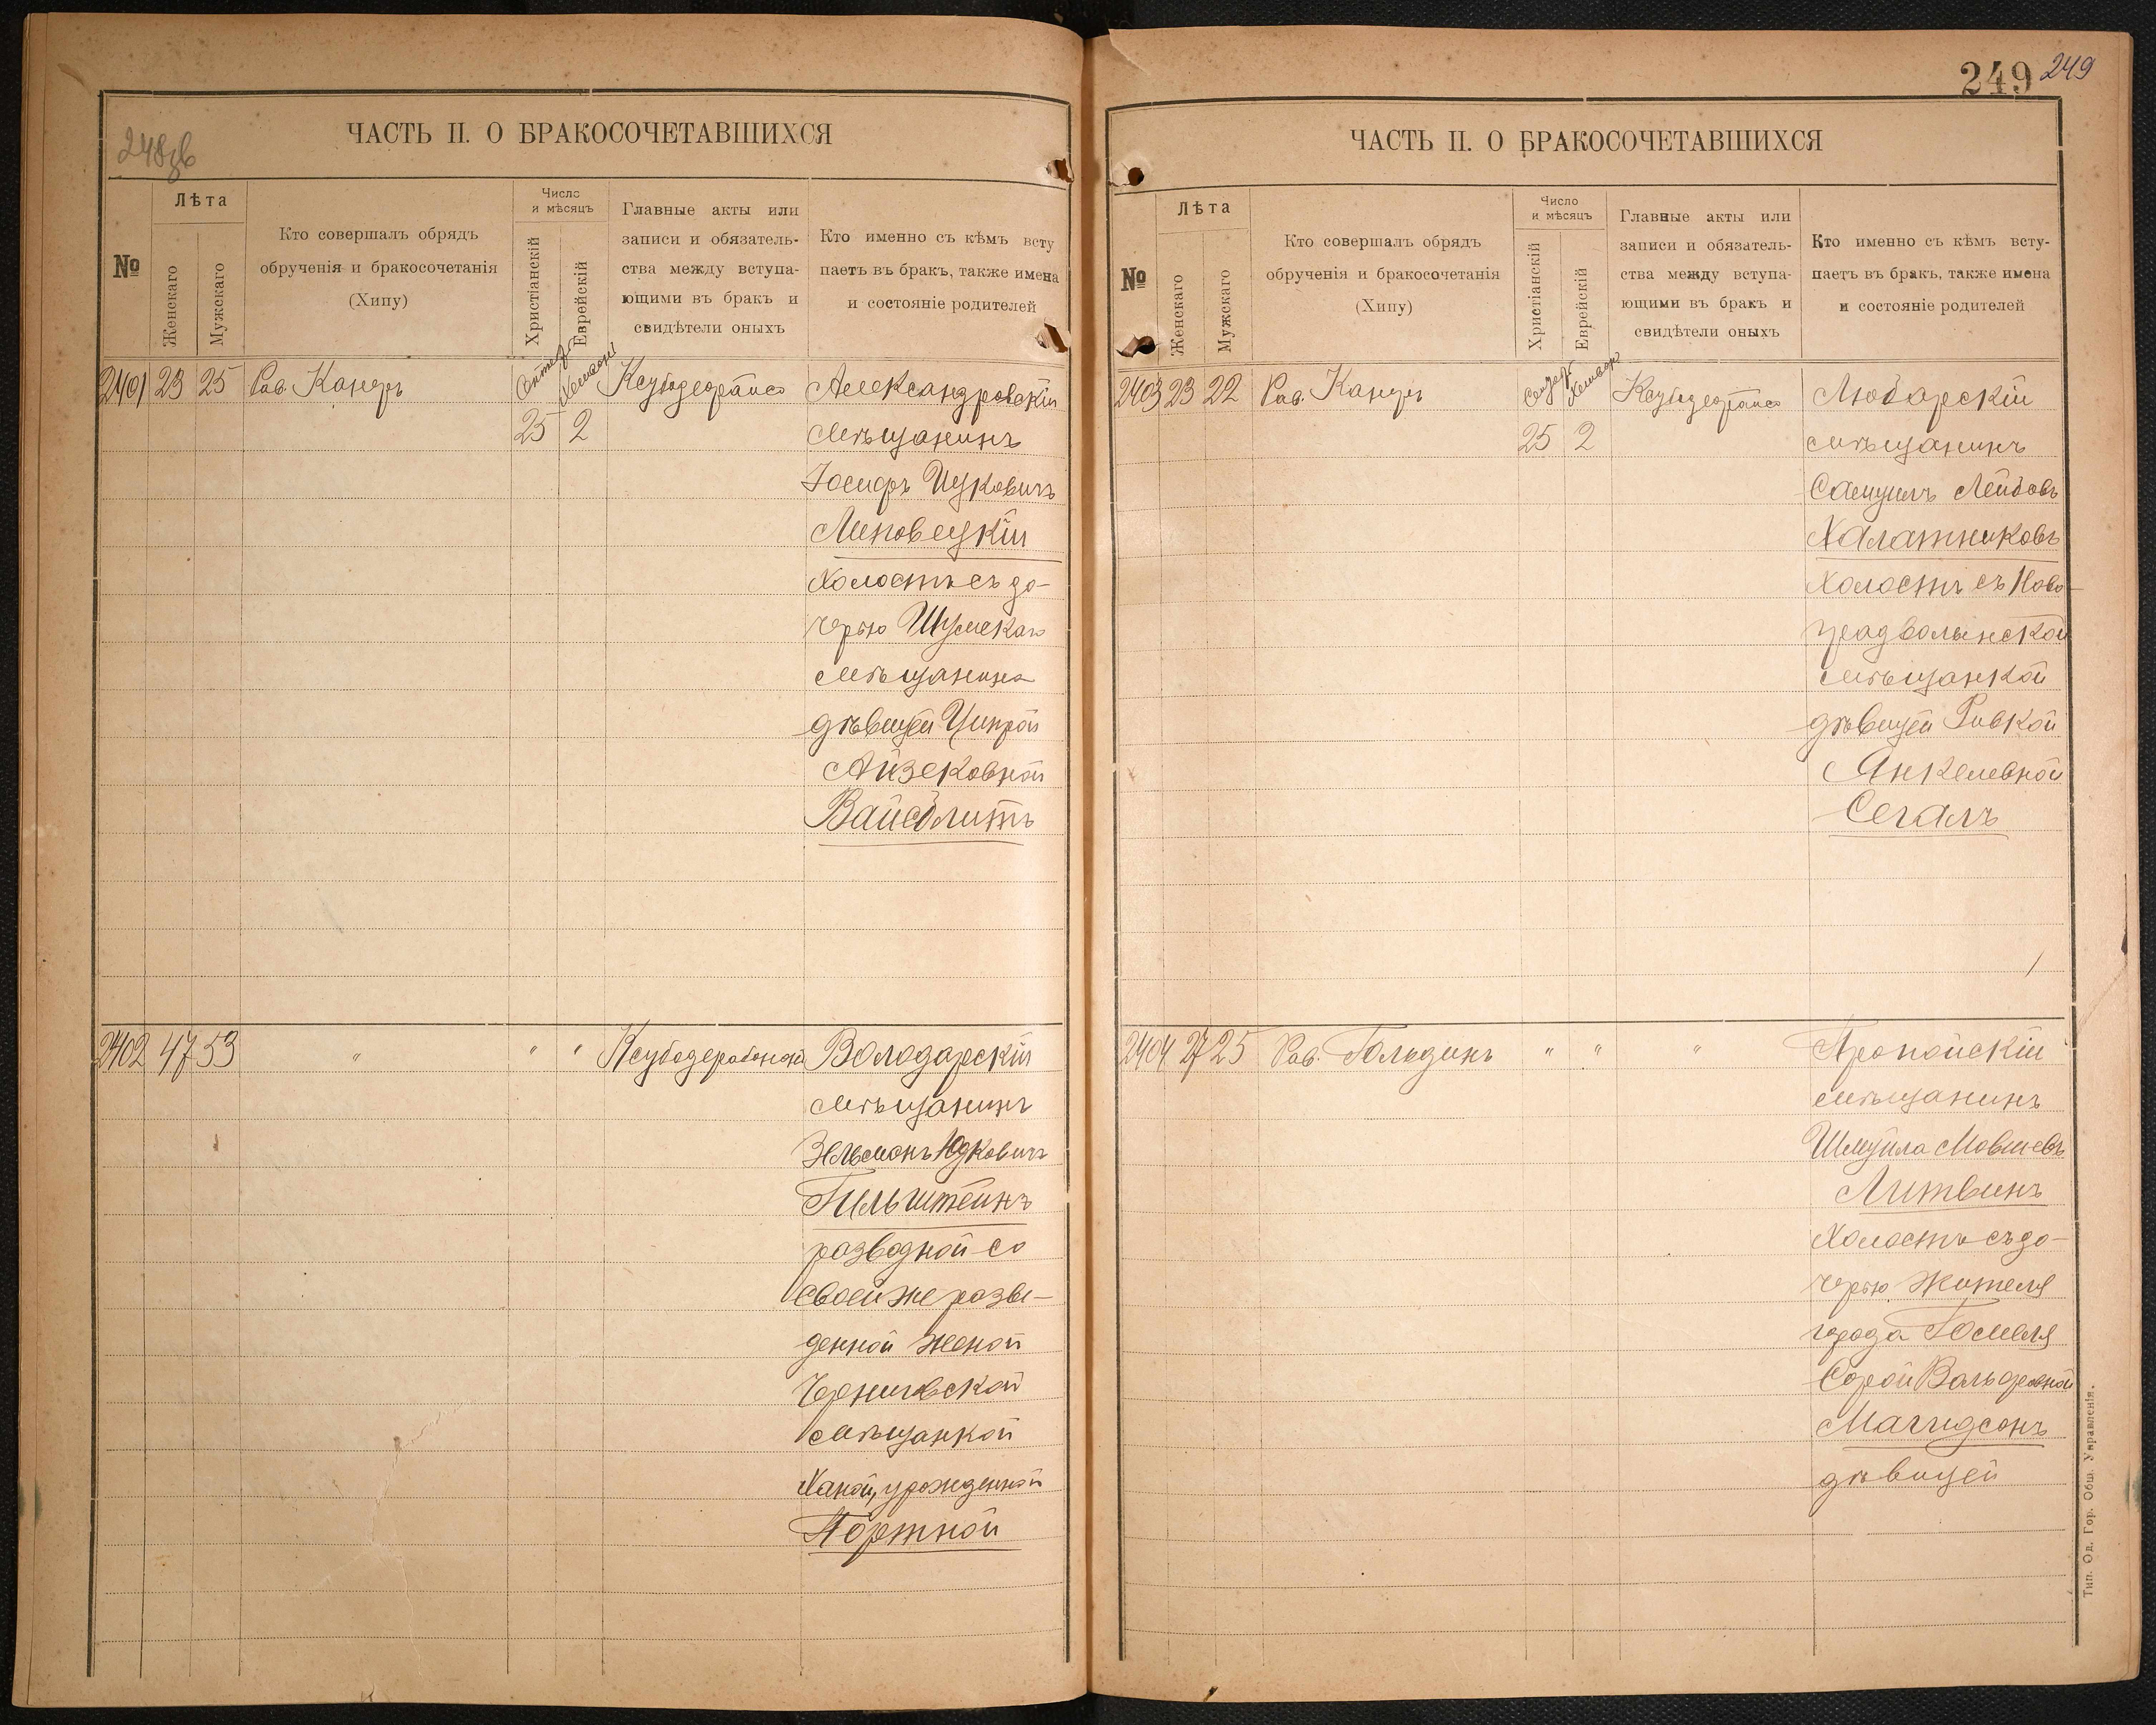 248об
ЧАСТЬ II. О БРАКОСОЧЕТАВШИХСЯ
№
Лѣта
Женскаго
Мужскаго
Кто совершалъ обрядъ
обрученія и бракосочетанія
(Хипу)
Число
и мѣсяцъ
Христіанскій
Еврейскій
Главные акты или
записи и обязатель-
ства между вступа-
ющими въ бракъ и
свидѣтели оныхъ
Кто именно съ кѣмъ всту
паетъ въ бракъ, также имена
и состояніе родителей
2401 23 25 Рав. Канцръ Александровскій
25 2 мѣщанинъ
Іосифъ Ицковичъ
Липовецкій
холостъ съ до-
черью Шумскаго
мѣщанина
дѣвицей Ципрой
Айзековной
Вайсблитъ
2402 47 53 " " " Володарскій
мѣщанинъ
Зельманъ Юдковичъ
Гильштейнъ
разводной со
своей же разве-
денной женой
Черниговской
мѣщанкой
Ханой, урожденной
Портной
249 249
ЧАСТЬ II. О БРАКОСОЧЕТАВШИХСЯ
№
Лѣта
Женскаго
Мужскаго
Кто совершалъ обрядъ
обрученія и бракосочетанія
(Хипу)
Число
и мѣсяцъ
Христіанскій
Еврейскій
Главные акты или
записи и обязатель-
ства между вступа-
ющими въ бракъ и
свидѣтели оныхъ
Кто именно съ кѣмъ всту-
паетъ въ бракъ, также имена
и состояніе родителей
2403 23 22 Рав. Канцръ Любарскій
25 2 мѣщанинъ
Самуилъ Лейбовъ
Халатниковъ
холостъ съ Ново-
градволынской
мѣщанкой
дѣвицей Ривкой
Янкелевной
Сегалъ
2404 27 25 Рав. Гольдинъ " " " Пропойскій
мѣщанинъ
Шмуйла Мовшевъ
Литвинъ
холостъ съ до-
черью жителя
города Гомеля
Сорой Вольфовной
Маггидсонъ
дѣвицей
Тип. Од. Гор. Общ. Управленія.